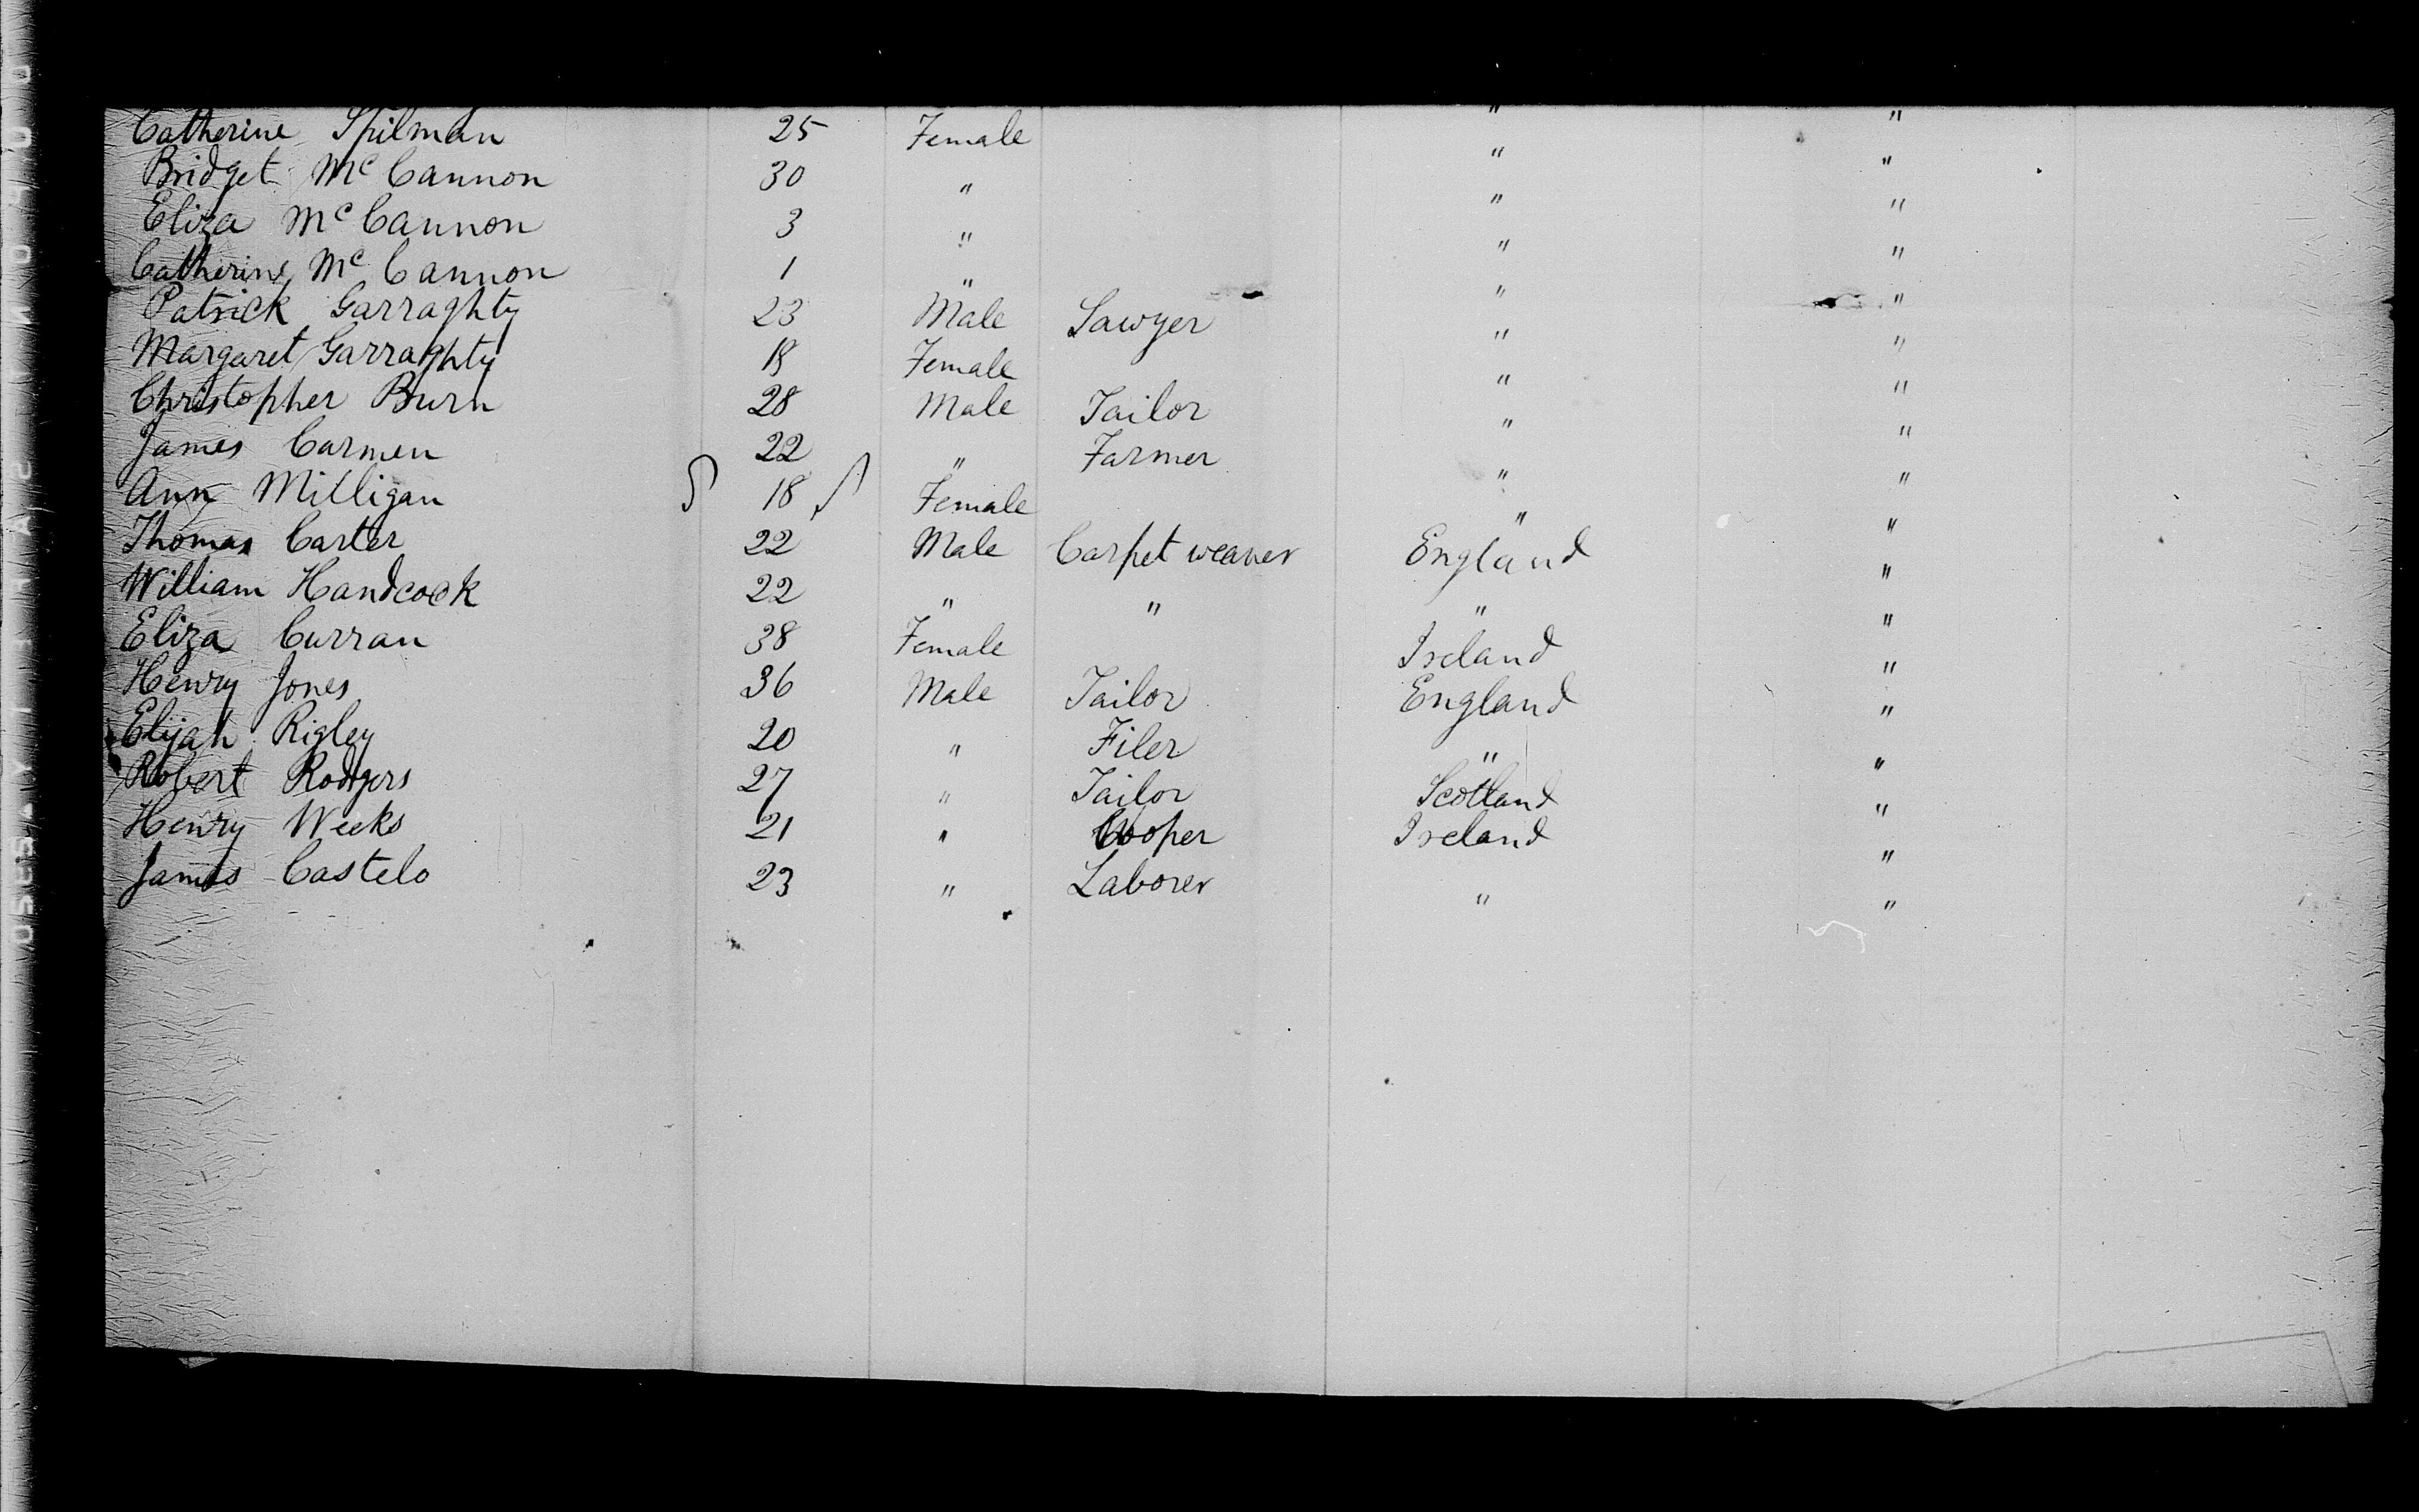 Catherine Spilman 25 Female " "
Bridget Mc Cannon 30 " " "
Eliza Mc Cannon 3 " " "
Catherine Mc Cannon 1 " " "
Patrick Garraghty 23 Male Sawyer " "
Margaret Garraghty 18 Female " "
Christopher Burn 28 Male Tailor " "
James Carmen 22 " Farmer " "
Ann Milligan 18 Female " "
Thomas Carter 22 Male Carpet weaver England "
William Handcock 22 " " " "
Eliza Curran 38 Female Ireland "
Henry Jones 36 Male Tailor England "
Elijah Rigley 20 " Filer " "
Robert Rodgers 27 " Tailor Scotland "
Henry Weeks 21 " Cooper Ireland "
James Castelo 23 " Laborer " "